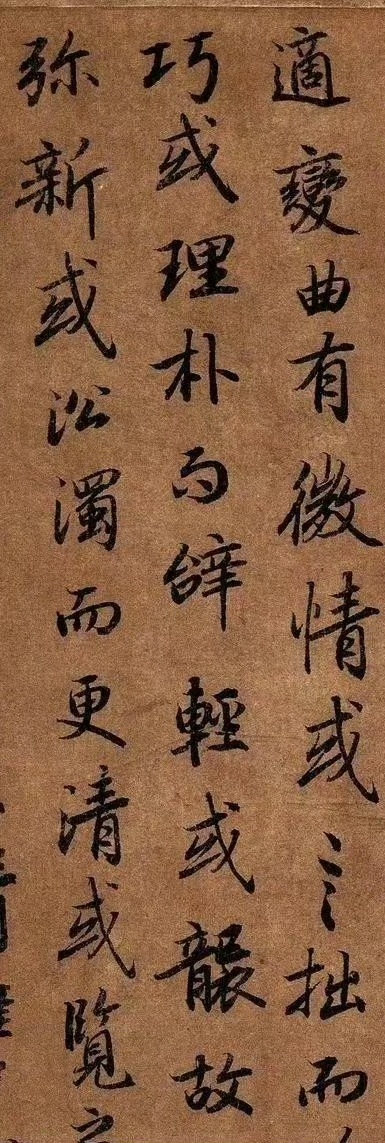 適變曲有微情或言拙而
巧或理朴而辭輕或襲故
弥新或沿濁而更清或覽之